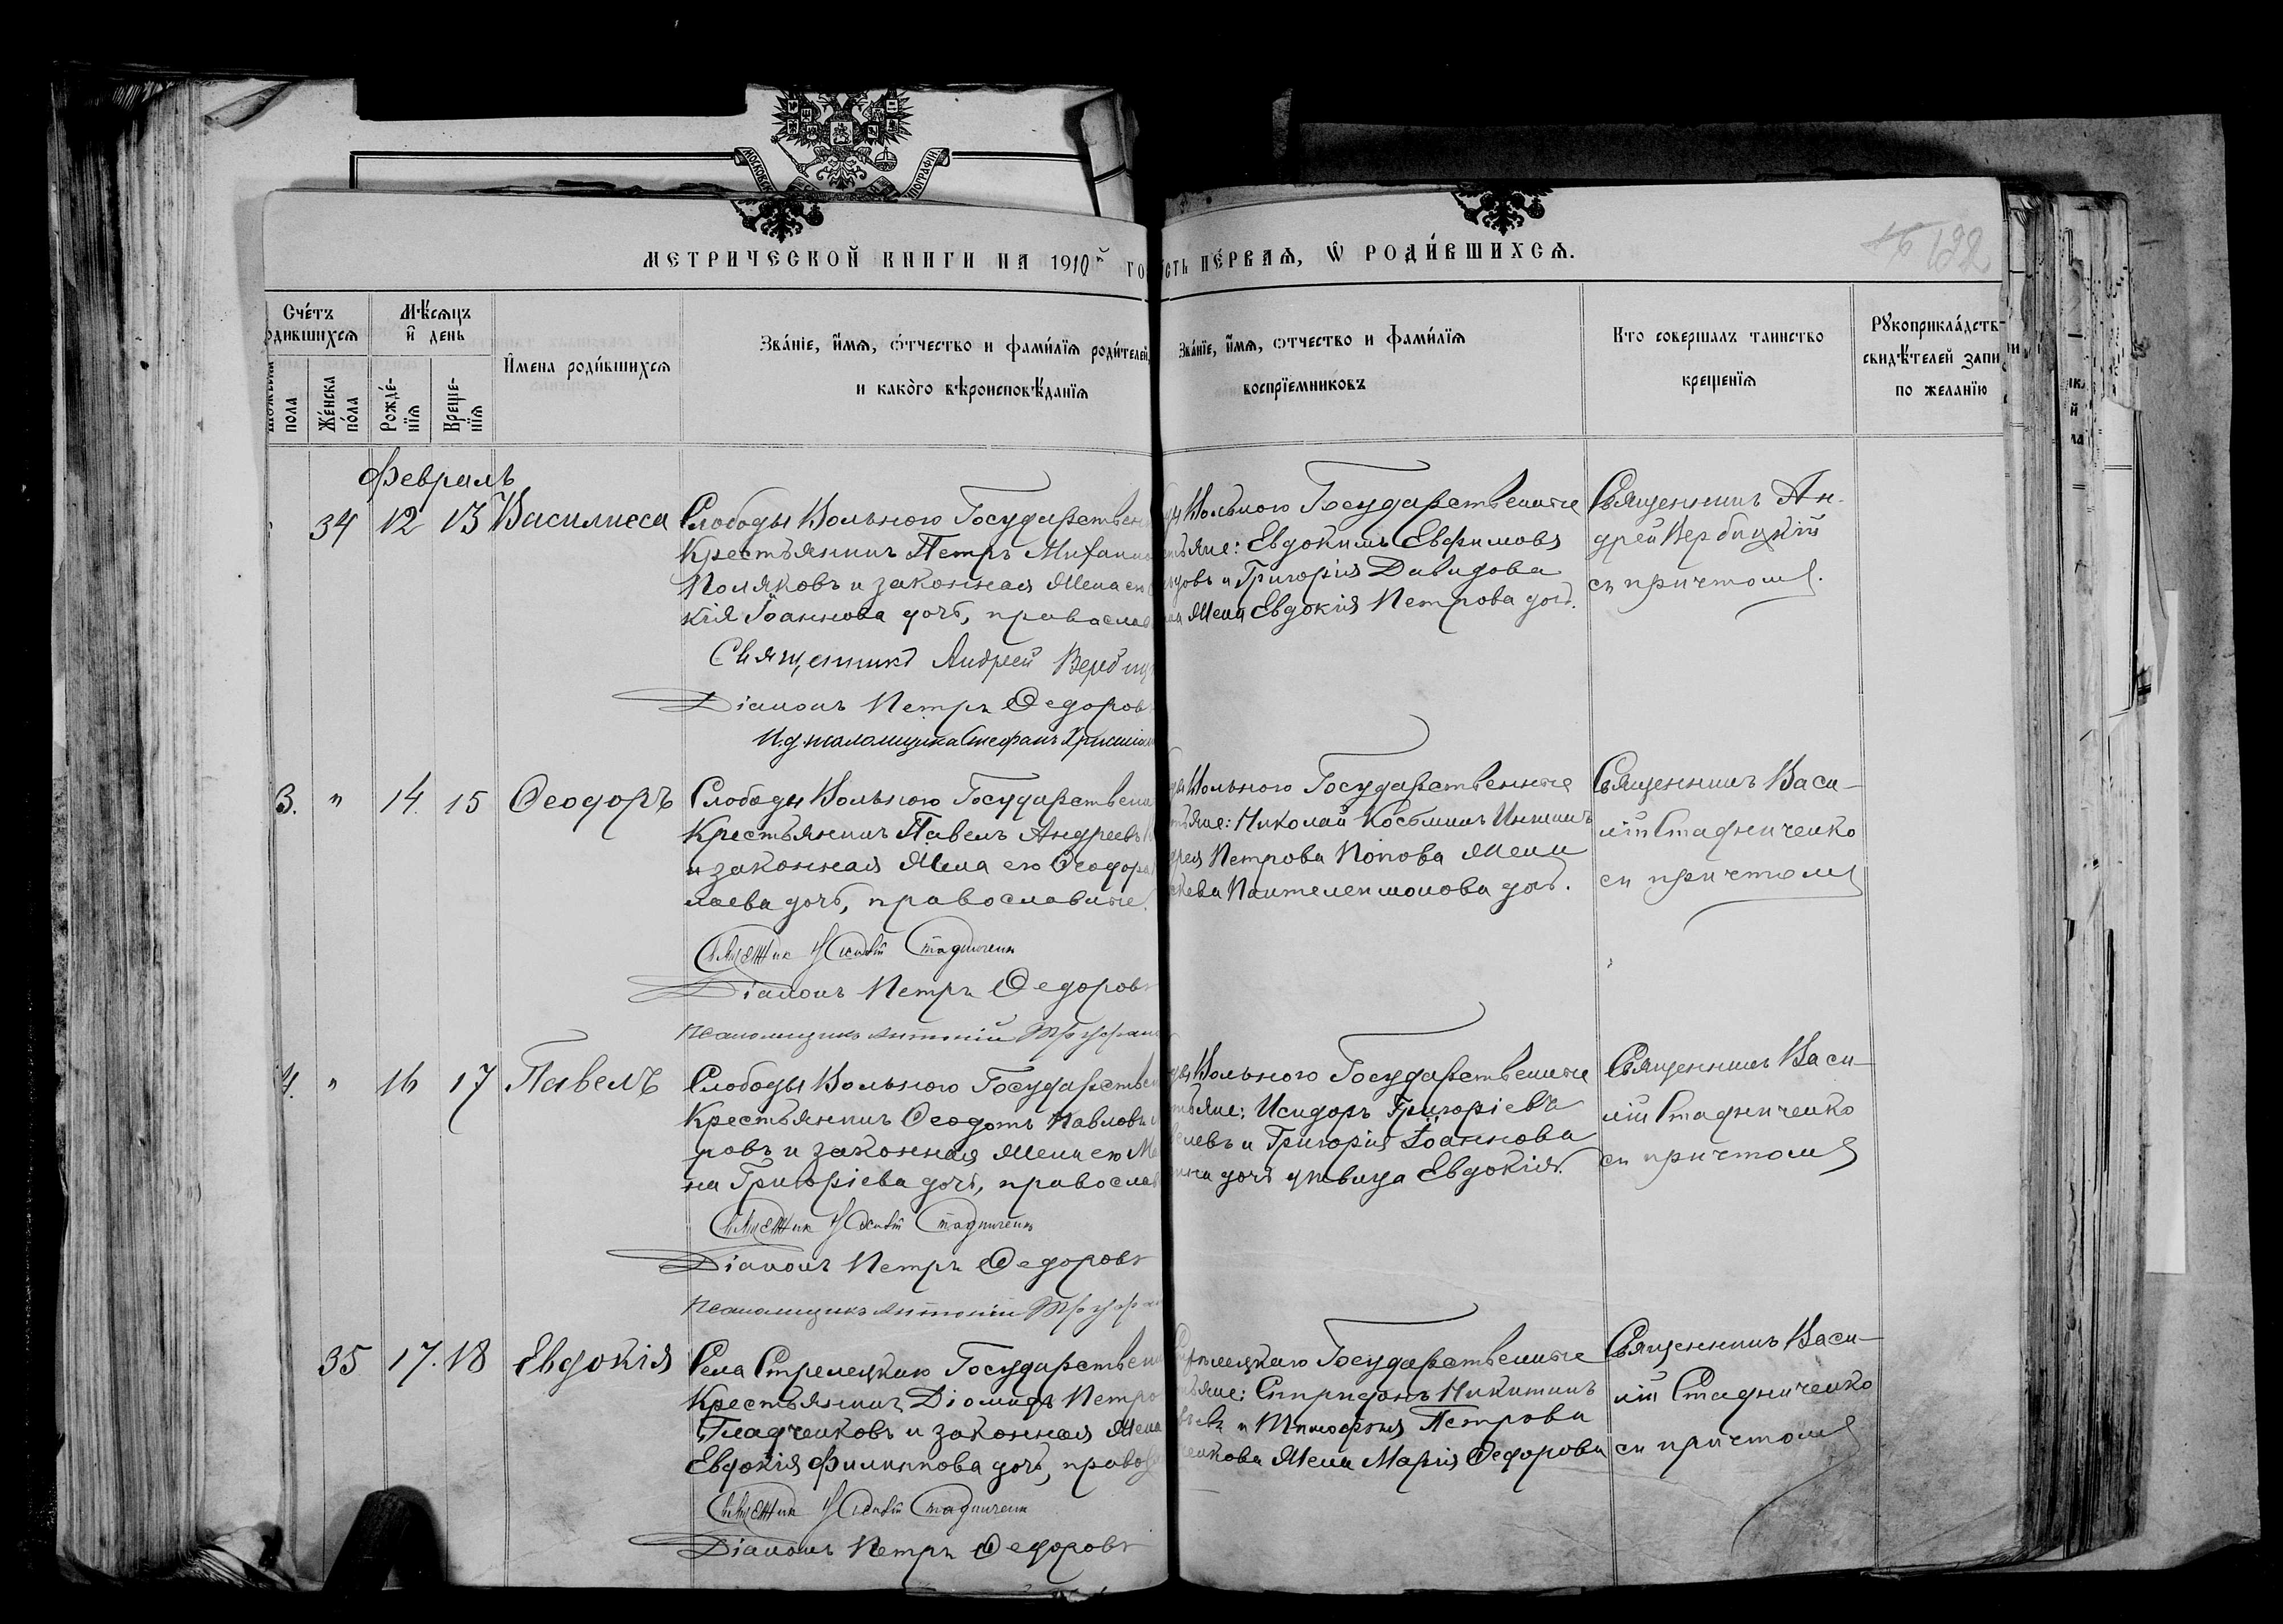 МЕТРИЧЕСКОЙ КНИГИ НА 1910й ГО
СТЬ ПЕ́РВАѦ, Ѿ РОДИ́ВШИХСѦ.
192
Сче́тъ
одившихсѧ
Мѣ́сѧцъ
и день
Имена роди́вшихсѧ
Зва́нїе, и́мѧ, о́тчество и фами́лїѧ роди́телей,
и како́го вѣроисповѣ́данїѧ
Зва́нїе, и́мѧ, о́тчество и фами́лїѧ
воспрїе́мниковъ
Кто совершалъ таинство
крещенїѧ
Рꙋкоприкла́дств
свидѣ́телей запи
по желанїю
пола
Же́нска
по́ла
Рожде́-
нїѧ
Креще-
нїѧ
Февраль
34 12 13 Василиса
Слободы Вольного Государствен
Крестьянинъ Петръ
Поляковъ и законная жена его
кія Іоаннова дочь, православ
Священникъ Андрей Вербиц
Діаконъ Петръ Ѳедоровъ
И.д. псаломщика Стефанъ
Вольного Государственные
яне: Евдокимъ Евфимовъ
и Григорія Давидова
жена Евдокія Петрова доч.
Священникъ Ан-
дрей Вербицкій
съ причтомъ.
3. " 14. 15 Ѳеодоръ
Слободы Вольного Государствен
Крестьянинъ Павелъ Андреевъ
и законная жена его Ѳеодора
лаева дочь, православные.
Священник Василій Стадниченко
Діаконъ Петръ Ѳедоровъ
Псаломщикъ Антоній
Вольного Государственные
яне: Николай Косьминъ
Петрова Попова жена
Пантелеимонова доч.
Священникъ Васи-
лій Стадниченко
съ причтомъ
4. " 16 17 Павелъ
Слободы Вольного Государствен
Крестьянинъ Ѳеодотъ Павловъ
ровъ и законная жена его М
на Григоріева дочь, православ
Священник Василій Стадниченко
Діаконъ Петръ Ѳедоровъ
Псаломщикъ Антоній
Вольного Государственные
яне: Исидоръ Григоріевъ
и Григорія Іоаннова
дочь дѣвица Евдокія.
Священникъ Васи-
лій Стадниченко
съ причтомъ
35 17. 18 Евдокія
Села Стрелецкаго Государствен
Крестьянинъ Діомидъ Петро
Гладченковъ и законная жена
Евдокія Филиппова дочь, право
Священник Василій Стадниченко
Діаконъ Петръ Ѳедоровъ
Государственные
яне: Спиридонъ Никитинъ
и Тимоѳея Петрова
енкова жена Марія Ѳедорова
Священникъ Васи-
лій Стадниченко
съ причтомъ